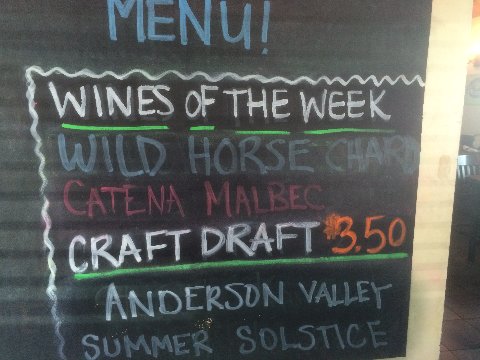 MENU!
WINES OF THE WEEK
WILD HORSE CHARD
CATENA MALBEC
CRAFT DRAFT $3.50
ANDERSON VALLEY
SUMMER SOLSTICE